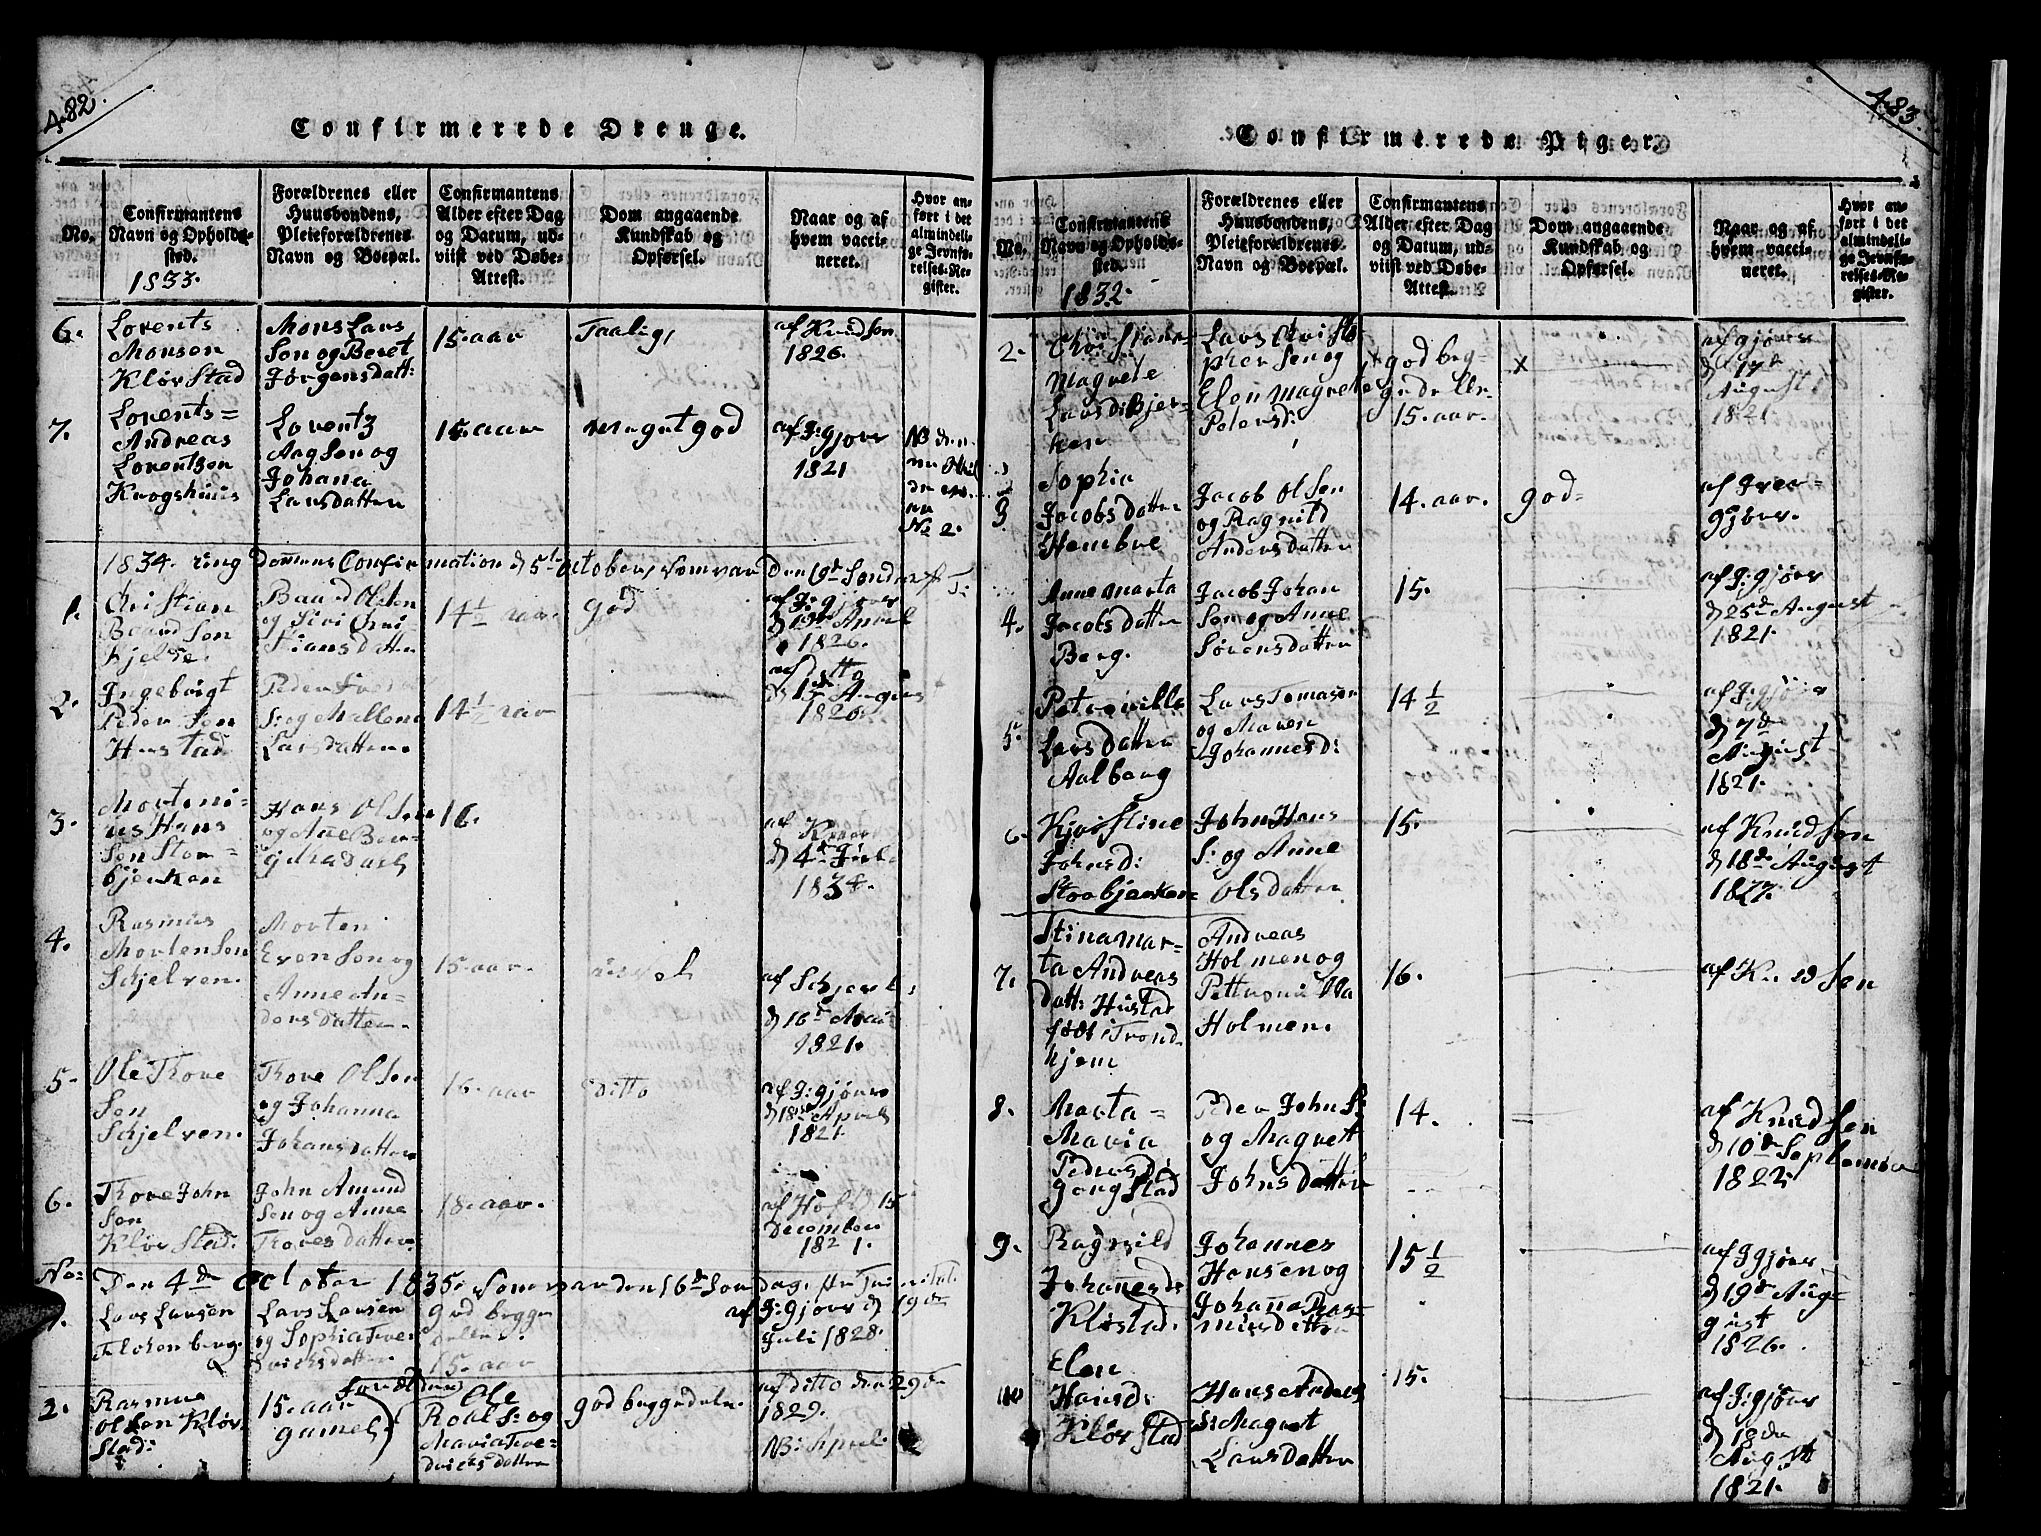 482.
Confirmerede Drenge.
No.
Confirmantens
Navn og Opholds-
sted.
1833.
Forældrenes eller
Huusbondens,
Pleieforældrenes
Navn og Boepæl.
Confirmantens
Alder efter Dag
og Datum, ud-
viist ved Døbe-
Attest.
Dom angaaende
Kundskab og
Opførsel.
Naar og af
hvem vacci-
neret.
Hvor an-
ført i det
almindeli-
ge Jevnfø-
relses-Re-
gister.
6.
Lorents
Monsen
Klørstad
Mons Lars
Søn og Beret
Jørgensdatt:
15. aar
Taalig,
af Knudsøn
1826.
7.
Lorents=
Andreas
Lorentsen
Krogshuus
Lorentz
Aagsøn og
Johana
Larsdatter
15. aar
meget god
af J: gjøvr
1821
No 2.
1834. ring dommens Confirmation d 5te october, som var den 19de Sønd
1.
Christian
Baardsøn
Kjelde.
Baard Olsen
og Siri Chri
stians datter
14 1/2 aar
god
af J: gjøvr
1826.
2.
Ingebrigt
Pedersøn
Hustad
S: og Mallena
Larsdatter.
14 1/2 aar
af Ditto
1826.
3.
Mortini-
us Hans
søn Stor=
bjerken
Hans Olsen
16.
d 4de
1834.
4.
Rasmus
Mortensøn
Schjelven.
Morten
Evensøn og
Anne An-
dersdatter.
15. aar.
af Schjer
1821.
5-
Ole Thove
Søn
Schjelven.
Thove Olsen
og Johanna
Johansdatter
16. aar
ditto
af J: gjøvr
d 18de April
1821.
6.
Thove John
Søn
Klørstad.
John Amund
Søn og Anna
Thoresdatter
18. aar.
af Hof d 15
December
1821.
No:
Den 4de october 1835. som var den 16de Søndag
1.
Lars Larsen
Flokenberg.
Lars Larsen
og Sophia
god begge
15. aar
af J: gjøvr d 19de
Juli 1828.
2.
Rasmus
Olsen Klør-
stad:
15. aar
gamel
foreldrene
Ole
Roals: og
Maria Fre-
dricksdatter
god beggedele
af ditto den 29de
1829.
NB: April
483.
Confirmerede Piger.
No.
Confirmantens
Navn og Opholds-
sted.
1832.
Forældrenes eller
Huusbondens,
Pleieforældrenes
Navn og Boepæl.
Confirmantens
Alder efter Dag
og Datum, ud-
viist ved Døbe-
Attest.
Dom angaaende
Kundskab og
Opførsel.
Naar og af
hvem vacci-
neret.
Hvor an-
ført i det
almindeli-
ge Jevnfø-
relses-Re-
gister.
2.
Magrete
Larsd: Bjer-
ken
Lars Christo
phersen og
Elen Magrete
Petersd:
x god beg-
gedeller
15. aar.
x
af gjøvr
d 17de
August
1821.
3
Sophia
Jacobsdatter
Hembre
Jacob Olsen
og Ragnild
Andersdatter
14. aar.
god=
af Iver=
gjøvr.
4.
Anne Marta
Jacobsdatter
Berg.
Jacob Johan
Søn og Anne
Sørensdatter
15.
af J: gjøvr
d 25de August
1821.
5.
Petronille
Larsdatter
Aalberg
Lars Tomasøn
og Maren
Johannesd:
14 1/2
af J: gjøvr
d 7de
August
1821.
6.
Kjristine
Johnsd:
Storbjerken
John Hans
S: og Anne
Olsdatter
15.
af Knudsøn
d 18de August
1827.
7.
Stina Mar-
ta Andreas
datt: Hustad
født i Trond-
hjem
Andreas
Holmen og
Holmen.
16.
af Knudsøn
8.
Marta=
Maria
Pedersd:
Gongstad
Peder John S:
og Magret
Johnsdatter
14.
=
af Knudsøn
d 10de September
1822.
9.
Ragnild
Johanesd:
Kløstad.
Johannes
Hansen og
Johanna Ras-
musdatter
15 1/2
af J gjøvr
d 19de Aug-
ust
1826.
10
Elen
Hansd:
Klørstad
Hans Anders
S: Magret
Larsdatter
15.
af J: gjøvr
d 18de
August
1821.